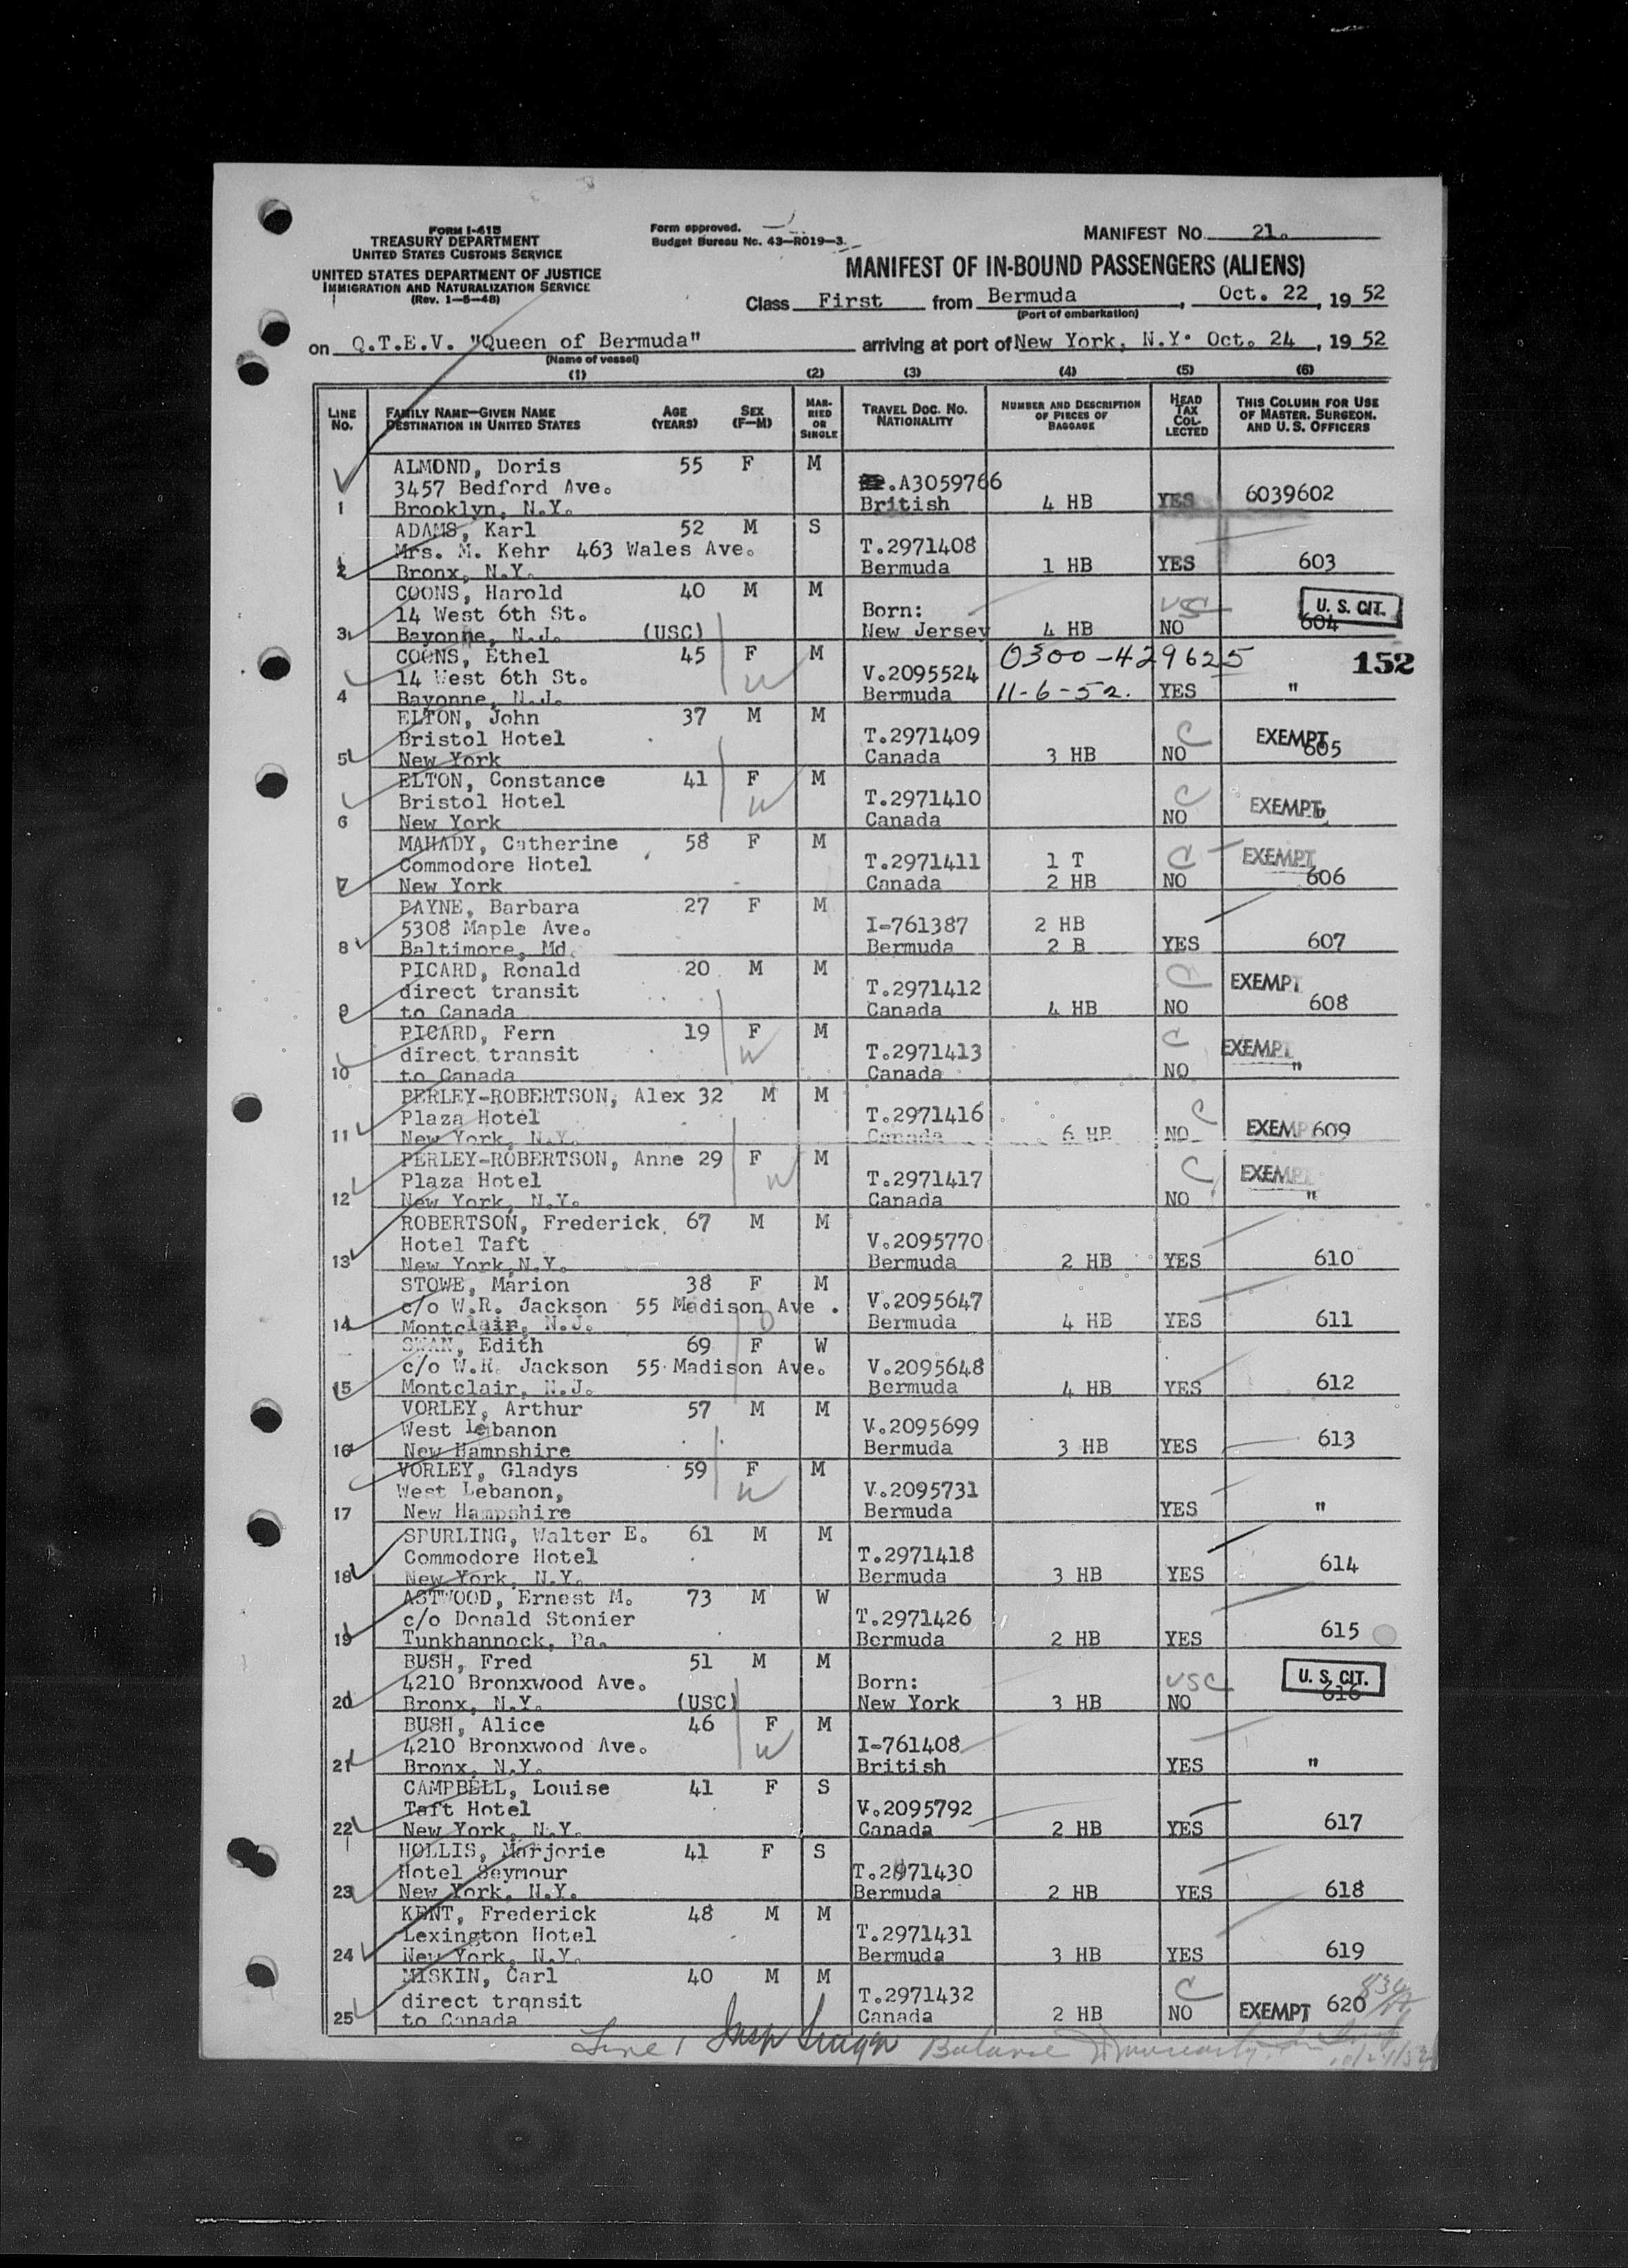 FORM I-415
TREASURY DEPARTMENT
UNITED STATES CUSTOMS SERVICE
UNITED STATES DEPARTMENT OF JUSTICE
IMMIGRATION AND NATURALIZATION SERVICE
(Rev. 1-5-48)
Form approved.
Budget Bureau No. 43-R019-3.
MANIFEST NO. 21.
MANIFEST OF IN-BOUND PASSENGERS (ALIENS)
Class First from Bermuda, Oct. 22, 1952
(Port of embarkation)
on Q.T.E.V. "Queen of Bermuda" arriving at port of New York, N.Y. Oct. 24, 1952
(Name of vessel)
(1) (2) (3) (4) (5) (6)
LINE NO. FAMILY NAME-GIVEN NAME DESTINATION IN UNITED STATES AGE (YEARS) SEX (F-M) MARRIED OR SINGLE TRAVEL DOC. NO. NATIONALITY NUMBER AND DESCRIPTION OF PIECES OF BAGGAGE HEAD TAX COLLECTED THIS COLUMN FOR USE OF MASTER, SURGEON, AND U. S. OFFICERS
ALMOND, Doris 55 F M
3457 Bedford Ave. .A3059766
1 Brooklyn, N.Y. British 4 HB YES 6039602
ADAMS, Karl 52 M S
Mrs. M. Kehr 463 Wales Ave. T.2971408
2 Bronx, N.Y. Bermuda 1 HB YES 603
COONS, Harold 40 M M
14 West 6th St. Born: USC U. S. CIT.
3 Bayonne, N.J. (USC) New Jersey 4 HB NO 604
COONS, Ethel 45 F M 0300-429625 152
14 West 6th St. W V.2095524
4 Bayonne, N.J. Bermuda 11-6-52. YES "
ELTON, John 37 M M
Bristol Hotel T.2971409 C EXEMPT
5 New York Canada 3 HB NO 605
ELTON, Constance 41 F M
Bristol Hotel W T.2971410 C EXEMPT
6 New York Canada NO
MAHADY, Catherine 58 F M
Commodore Hotel T.2971411 1 T C EXEMPT
7 New York Canada 2 HB NO 606
PAYNE, Barbara 27 F M
5308 Maple Ave. I-761387 2 HB
8 Baltimore, Md. Bermuda 2 B YES 607
PICARD, Ronald 20 M M
direct transit T.2971412 C EXEMPT
9 to Canada Canada 4 HB NO 608
PICARD, Fern 19 F M
direct transit W T.2971413 C EXEMPT
10 to Canada Canada NO "
PERLEY-ROBERTSON, Alex 32 M M
Plaza Hotel T.2971416 C
11 New York, N.Y. Canada 6 HB NO EXEMP 609
PERLEY-ROBERTSON, Anne 29 F M
Plaza Hotel W T.2971417 C EXEMPT
12 New York, N.Y. Canada NO "
ROBERTSON, Frederick 67 M M
Hotel Taft V.2095770
13 New York, N.Y. Bermuda 2 HB YES 610
STOWE, Marion 38 F M
c/o W.R. Jackson 55 Madison Ave. V.2095647
14 Montclair, N.J. Bermuda 4 HB YES 611
SWAN, Edith 69 F W
c/o W.R. Jackson 55 Madison Ave. V.2095648
15 Montclair, N.J. Bermuda 4 HB YES 612
VORLEY, Arthur 57 M M
West Lebanon V.2095699
16 New Hampshire Bermuda 3 HB YES 613
VORLEY, Gladys 59 F M
West Lebanon, W V.2095731
17 New Hampshire Bermuda YES "
SPURLING, Walter E. 61 M M
Commodore Hotel T.2971418
18 New York, N.Y. Bermuda 3 HB YES 614
ASTWOOD, Ernest M. 73 M W
c/o Donald Stonier T.2971426
19 Tunkhannock, Pa. Bermuda 2 HB YES 615
BUSH, Fred 51 M M
4210 Bronxwood Ave. Born: USC U. S. CIT.
20 Bronx, N.Y. (USC) New York 3 HB NO 616
BUSH, Alice 46 F M
4210 Bronxwood Ave. W I-761408
21 Bronx, N.Y. British YES "
CAMPBELL, Louise 41 F S
Taft Hotel V.2095792
22 New York, N.Y. Canada 2 HB YES 617
HOLLIS, Marjorie 41 F S
Hotel Seymour T.2971430
23 New York, N.Y. Bermuda 2 HB YES 618
KENT, Frederick 48 M M
Lexington Hotel T.2971431
24 New York, N.Y. Bermuda 3 HB YES 619
MISKIN, Carl 40 M M
direct transit T.2971432 C
25 to Canada Canada 2 HB NO EXEMPT 620
Line 1 Insp Balance